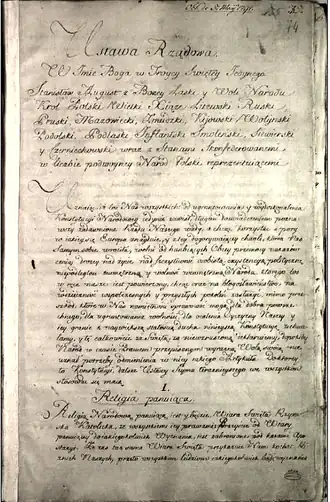 Ustawa Rządowa.
W Imie Boga w Troycy Swiętey Jedynego.
Stanisław August z Bożey Łaski y Woli Narodu
Krol Polski Wielki Xiąże Litewski Ruski
Pruski Mazowiecki, Zmudzki, Kijowski Wołynski
Podolski, Podlaski Inflantski Smolenski, Siewierski
y Czerniechowski, wraz z Stanami Skonfederowanemi
w liczbie podwoyney Narod Polski reprezentuiącemi.
Uznaiąc, iż los Nas wszystkich od ugruntowania y wydoskonalenia
Konstytucyi Narodowey iedynie zawisł, długim doswiadczeniem pozna-
wszy zadawnione Rządu Naszego wady, a chcąc korzystać z pory
w iakiey się Europa znayduie, y z tey dogorywaiącey chwili, ktora Nas
samym sobie wrociła, wolni od hanbiących Obcey przemocy nakazow
ceniąc drożey nad życie nad szczęśliwosć osobistą, exystencyą polityczną
niepodległosc zewnętrzną y wolnosc wewnętrzną Narodu, ktorego los
w ręce nasze iest powierzony, chcąc oraz na błogosławienstwo, na
wdzięcznosc wspołczesnych y przyszłych pokolen zasłużyć, mimo prze-
szkod, ktore w Nas namiętnosci sprawować mogą, dla dobra powsze-
chnego, dla ugruntowania wolnosci, dla ocalenia Oyczyzny Naszey y
iey granic z naywiększą stałoscią ducha, ninieyszą Konstytucyę uchwa-
lamy, y tę całkowicie za swiętą, za niewzruszoną deklaruiemy, dopokiby
Narod w czasie prawem przepisanym wyrazną Wolą swoią nie
uznał potrzeby odmienienia w niey iakiego Artykułu. Do ktorey
to Konstytucyi dalsze Ustawy Seymu teraznieyszego we wszystkim
stosować się maią.
I.
Religia panuiąca.
Religią Narodową panuiącą iest y będzie Wiara Swięta Rzym-
ska Katolicka, ze wszystkiemi iey prawami. Przeyscie od Wiary
panuiącey do iakiegokolwiek Wyznania iest zabronione pod karami Apo-
stazyi. Ze zas ta sama Wiara Swięta przykazuie Nam kochać bli-
znich Naszych, przeto wszystkim Ludziom iakiegokolwiek bądz wyznania